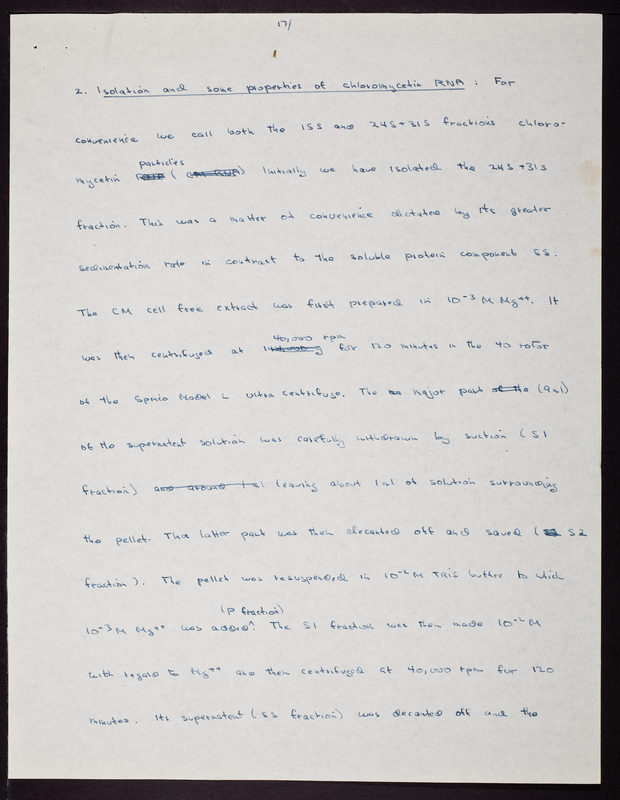 17/
2. Isolation and some properties of chloromycetin RNA : For
convenience we call both the 15S and 24S+31S fractions chloro-
particles
mycetin RNA ( CM RNA) Initially we have isolated the 24S+31S
fraction. This was a matter of convenience dictated by its greater
sedimentation rate in contrast to the soluble protein component 5S.
The CM cell free extract was first prepared in 10-3 M Mg++. It
40,000 rpm
was then centrifuged at g for 120 minutes in the 40 rotor
of the Spinco Model L ultra centrifuge. The major part of the (9ml)
of the supernatent solution was carefully withdrawn by suction (S1
fraction) and around 1ml leaving about 1ml of solution surrounding
the pellet. This latter part was then decanted off and saved ( S2
fraction). The pellet was resuspended in 10-2 M Tris buffer to which
(P fraction)
10-3 M Mg++ was added^. The S1 fraction was then made 10-2 M
with regard to Mg++ and then centrifuged at 40,000 rpm for 120
minutes. Its supernatent (SS fraction) was decanted off and the